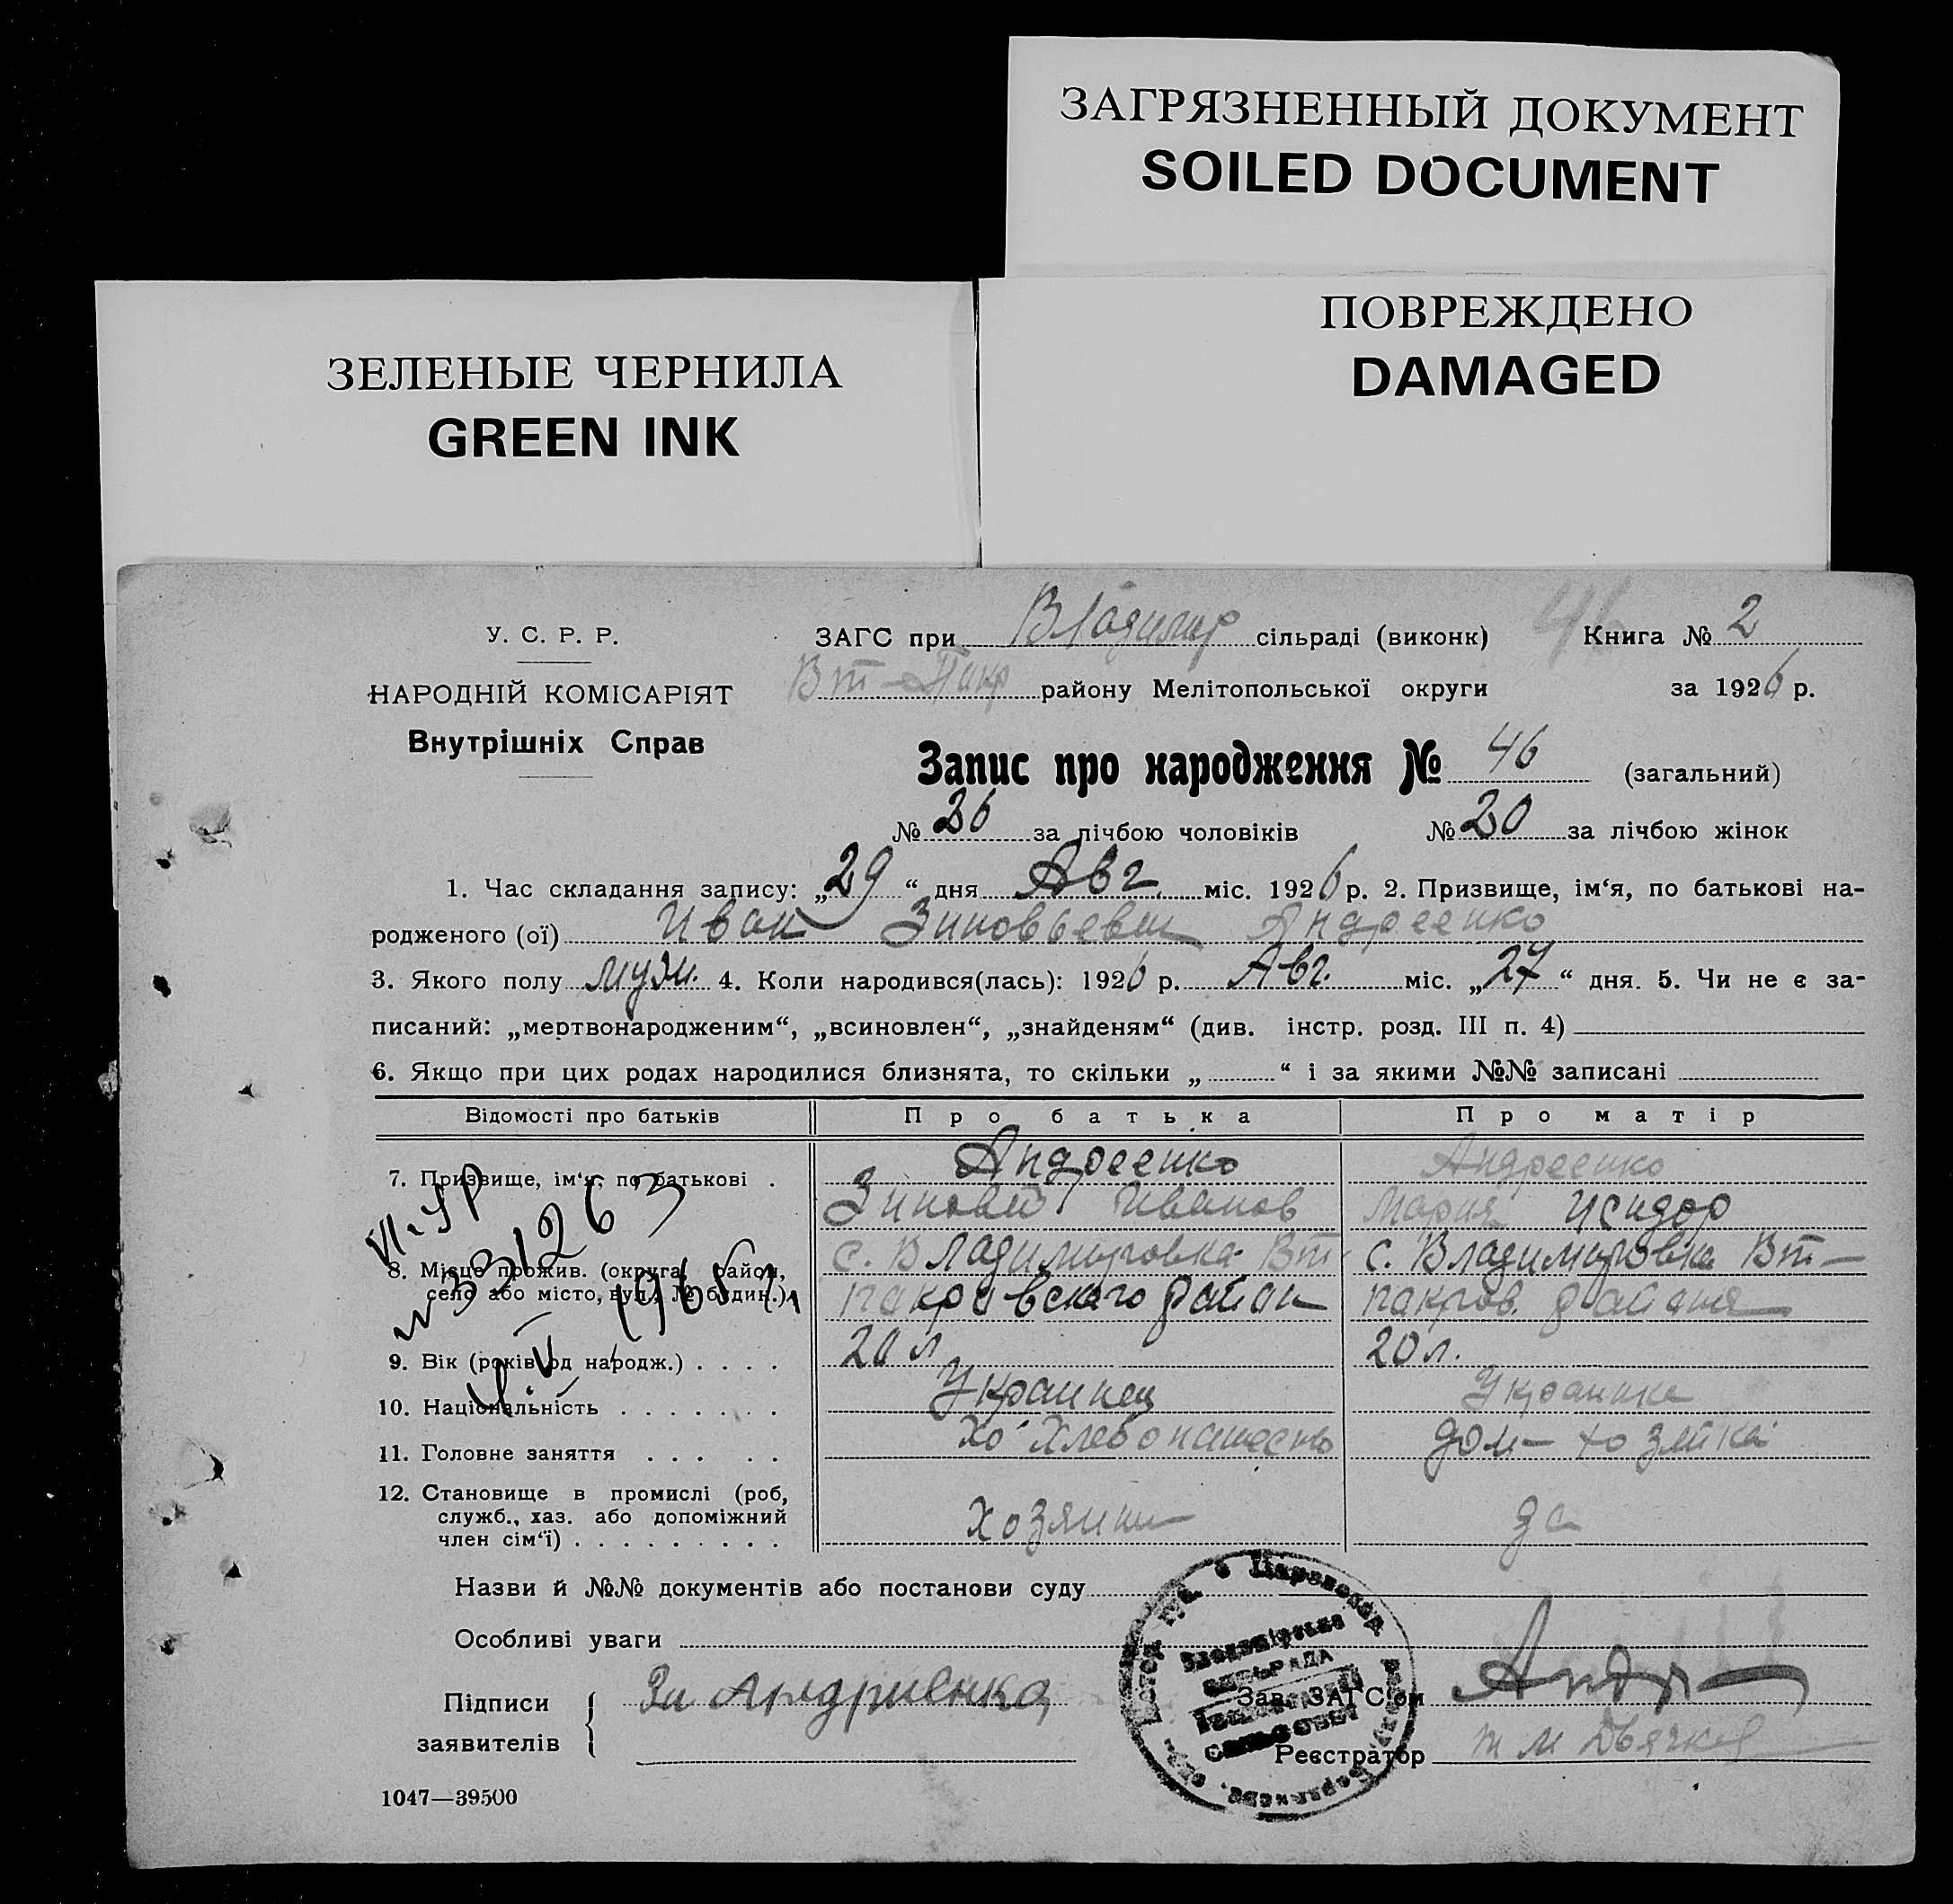 ЗАГРЯЗНЕННЫЙ ДОКУМЕНТ
SOILED DOCUMENT
ПОВРЕЖДЕНО
DAMAGED
ЗЕЛЕНЫЕ ЧЕРНИЛА
GREEN INK
У. С. Р. Р.
НАРОДНІЙ КОМІСАРІЯТ
Внутрішніх Справ
ЗАГС при Владимир сільраді (виконк) 46 Книга № 2
Вт-Покр району Мелітопольської округи за 1926 р.
Запис про народження № 46 (загальний)
№ 26 за лічбою чоловіків № 20 за лічбою жінок
1. Час складання запису: „29“ дня Авг. міс. 1926 р. 2. Призвище, ім‘я, по батькові на-
родженого (ої) Иван Зиновьевич Андреенко
3. Якого полу муж. 4. Коли народився(лась): 1926 р. Авг. міс. „27“ дня. 5. Чи не є за-
писаний: „мертвонародженим“, „всиновлен“, „знайденям“ (див. інстр. розд. III п. 4)
6. Якщо при цих родах народилися близнята, то скільки „ “ і за якими №№ записані
Відомості про батьків Про батька Про матір
7. Призвище, ім‘я, по батькові . Андреенко Андреенко
Зиновий Иванов Мария Исидор
8. Місце прожив. (округа, район, с. Владимировка Вт с. Владимировка Вт—
село або місто, вул., № будин.). покровского район покров. района
9. Вік (років од народж.) . . . . 20 л 20 л.
10. Національність . . . . . . . Украинец Украинка
11. Головне заняття . . . . . Хлебопашество дом-хозяйка
12. Становище в промислі (роб,
служб., хаз. або допоміжний Хозяин
член сім‘ї) . . . . . . . . .
331263
1965 г.
Назви й №№ документів або постанови суду
Особливі уваги
СІЛЬРАДА
Підписи Зи Андриенка Зав. ЗАГС‘ом Андр
заявителів Реєстратор
1047—39500